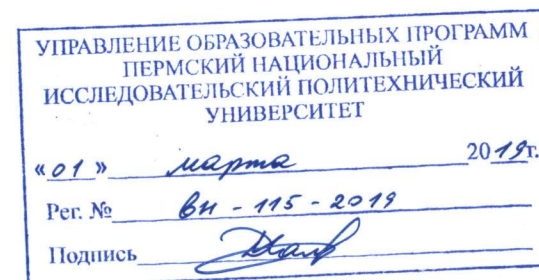 УПРАВЛЕНИЕ ОБРАЗОВАТЕЛЬНЫХ ПРОГРАММ
ПЕРМСКИЙ НАЦИОНАЛЬНЫЙ
ИССЛЕДОВАТЕЛЬСКИЙ ПОЛИТЕХНИЧЕСКИЙ
УНИВЕРСИТЕТ
«01» марта 2019г.
Рег. № вн - 115 - 2019
Подпись